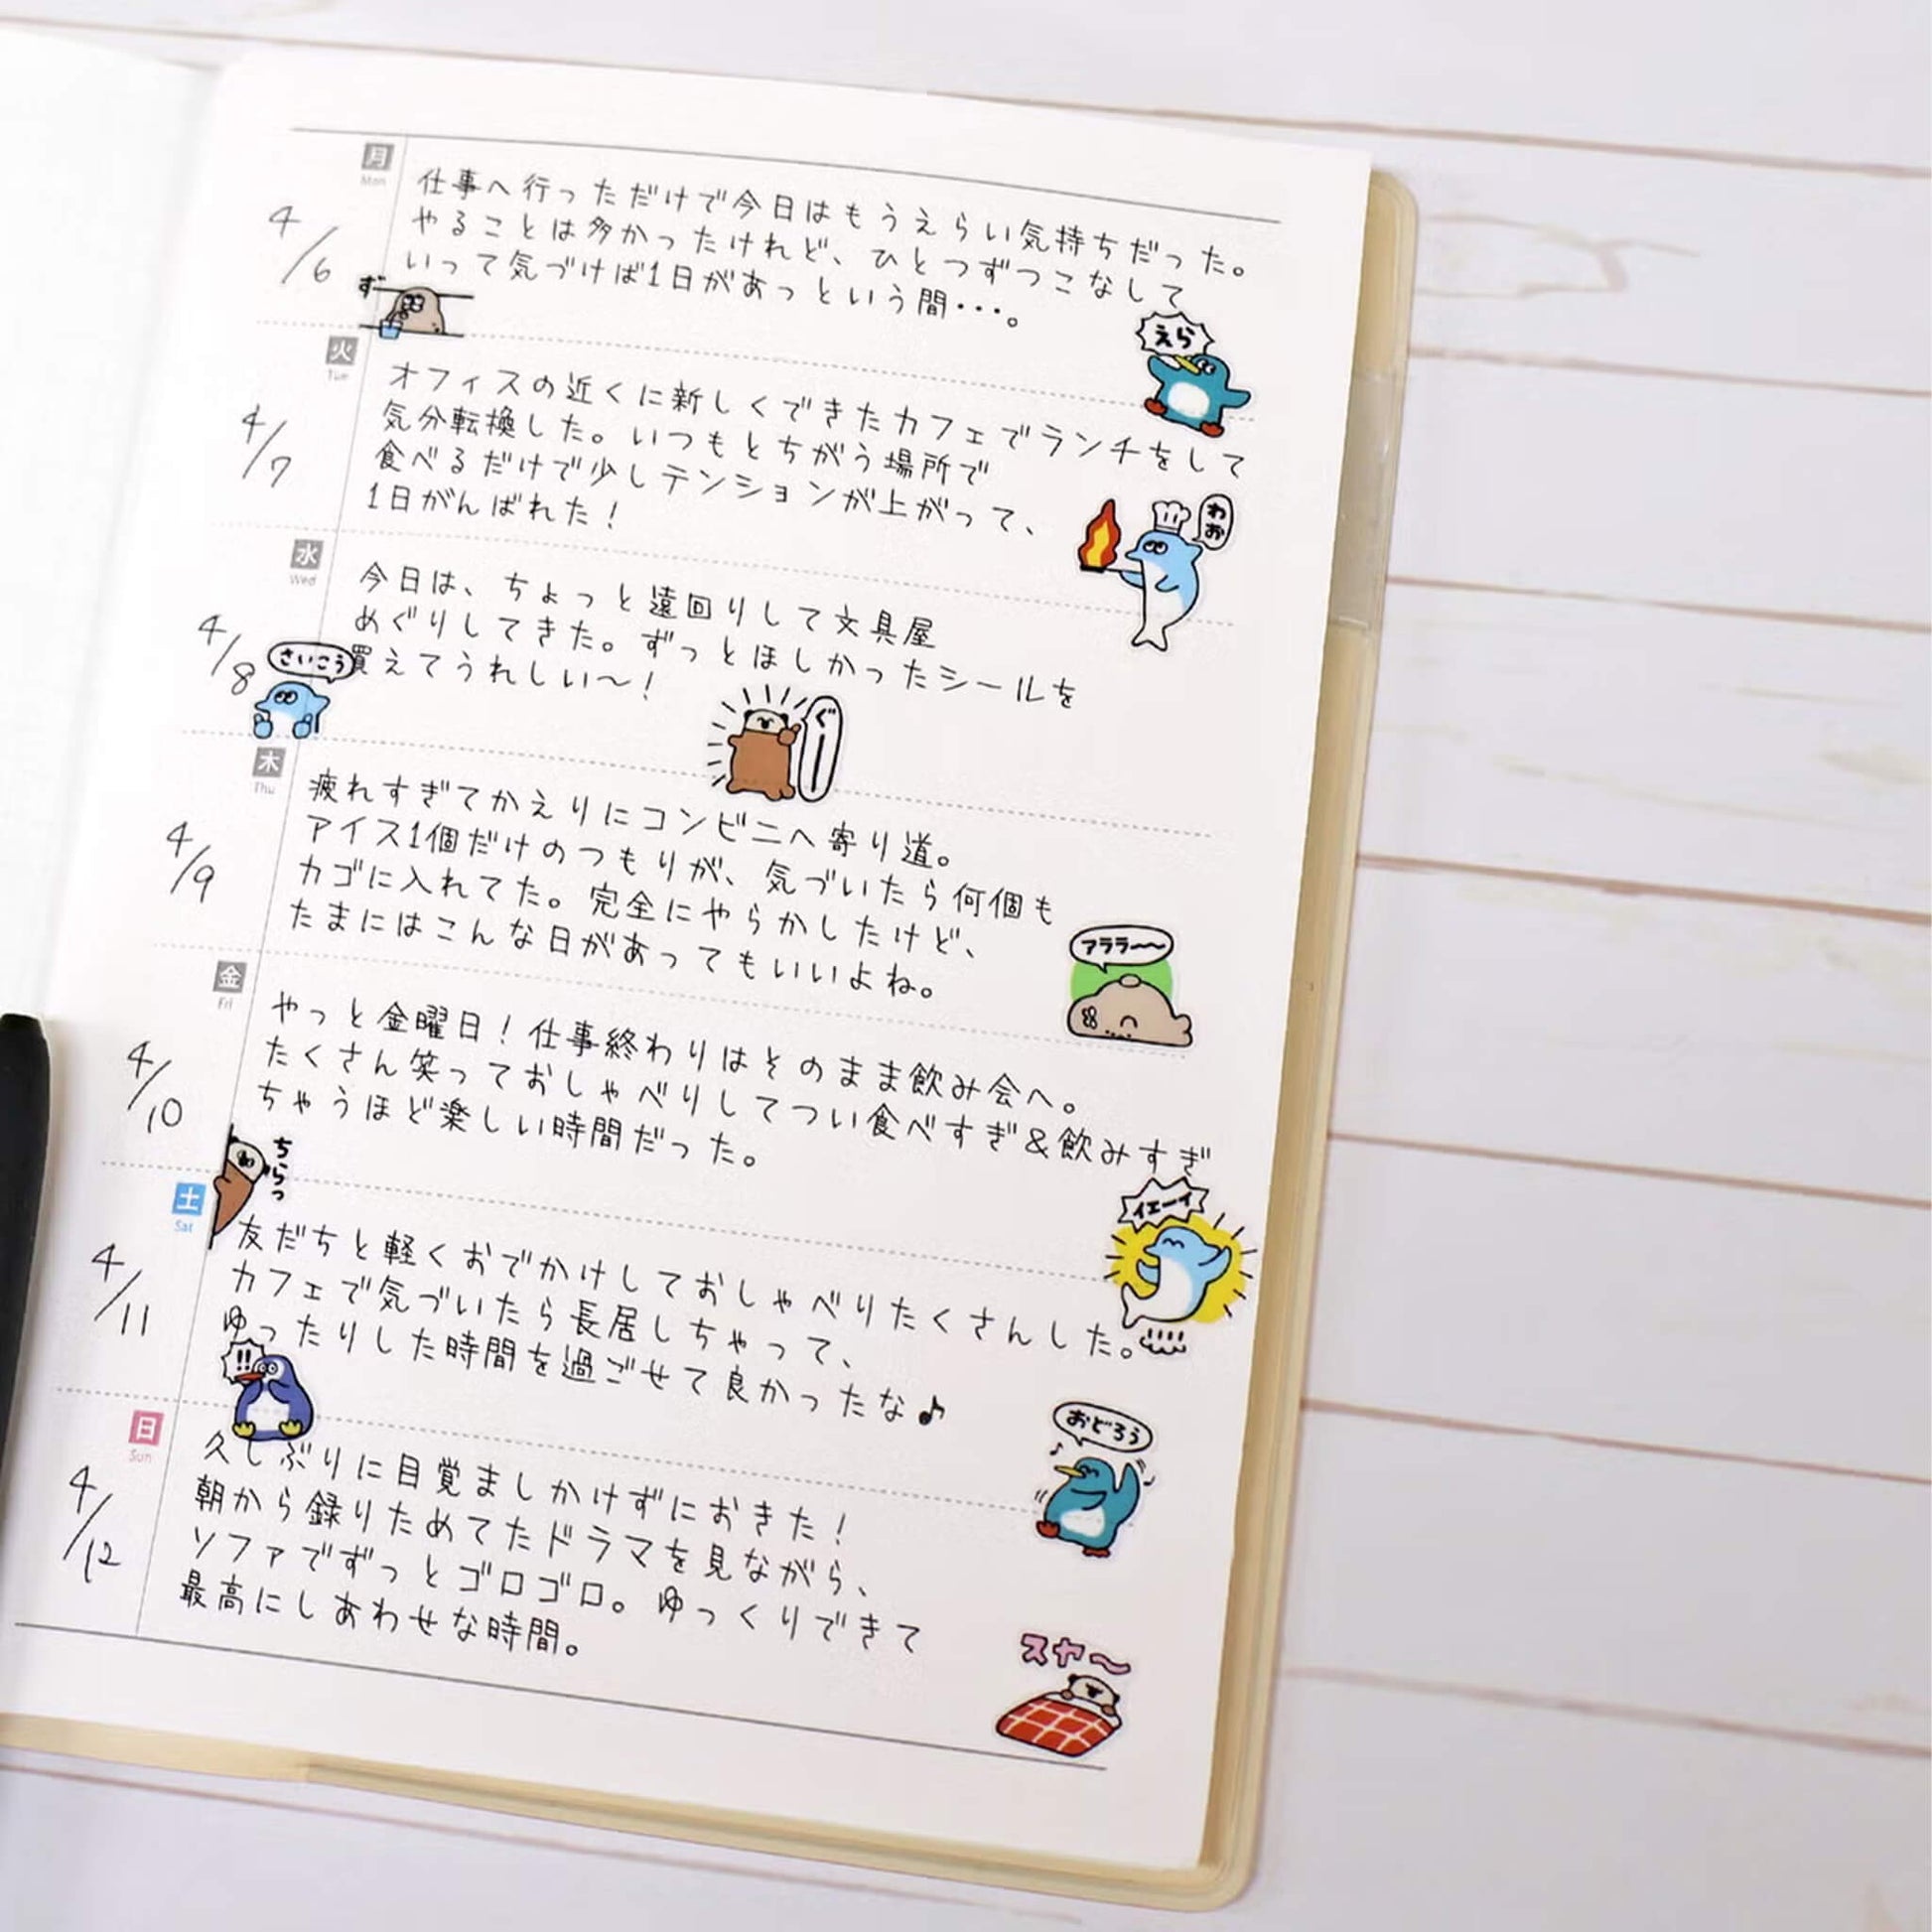 月
Mon
4/6
仕事へ行っただけで今日はもうえらい気持ちだった。
やることは多かったけれど、ひとつずつこなして
いって気づけば1日があっという間・・・。
ず
えら
火
Tue
4/7
オフィスの近くに新しくできたカフェでランチをして
気分転換した。いつもとちがう場所で
食べるだけで少しテンションが上がって、
1日がんばれた！
わお
水
Wed
4/8
今日は、ちょっと遠回りして文具屋
めぐりしてきた。ずっとほしかったシールを
買えてうれしい〜！
さいこう
ぐー
木
Thu
4/9
疲れすぎてかえりにコンビニへ寄り道。
アイス1個だけのつもりが、気づいたら何個も
カゴに入れてた。完全にやらかしたけど、
たまにはこんな日があってもいいよね。
アララ〜
金
Fri
4/10
やっと金曜日！仕事終わりはそのまま飲み会へ。
たくさん笑っておしゃべりしてつい食べすぎ＆飲みすぎ
ちゃうほど楽しい時間だった。
ちらっ
イエーイ
土
Sat
4/11
友だちと軽くおでかけしておしゃべりたくさんした。
カフェで気づいたら長居しちゃって、
ゆったりした時間を過ごせて良かったな♪
!!
おどろう
日
Sun
4/12
久しぶりに目覚ましかけずにおきた！
朝から録りためてたドラマを見ながら、
ソファでずっとゴロゴロ。ゆっくりできて
最高にしあわせな時間。
スヤ〜